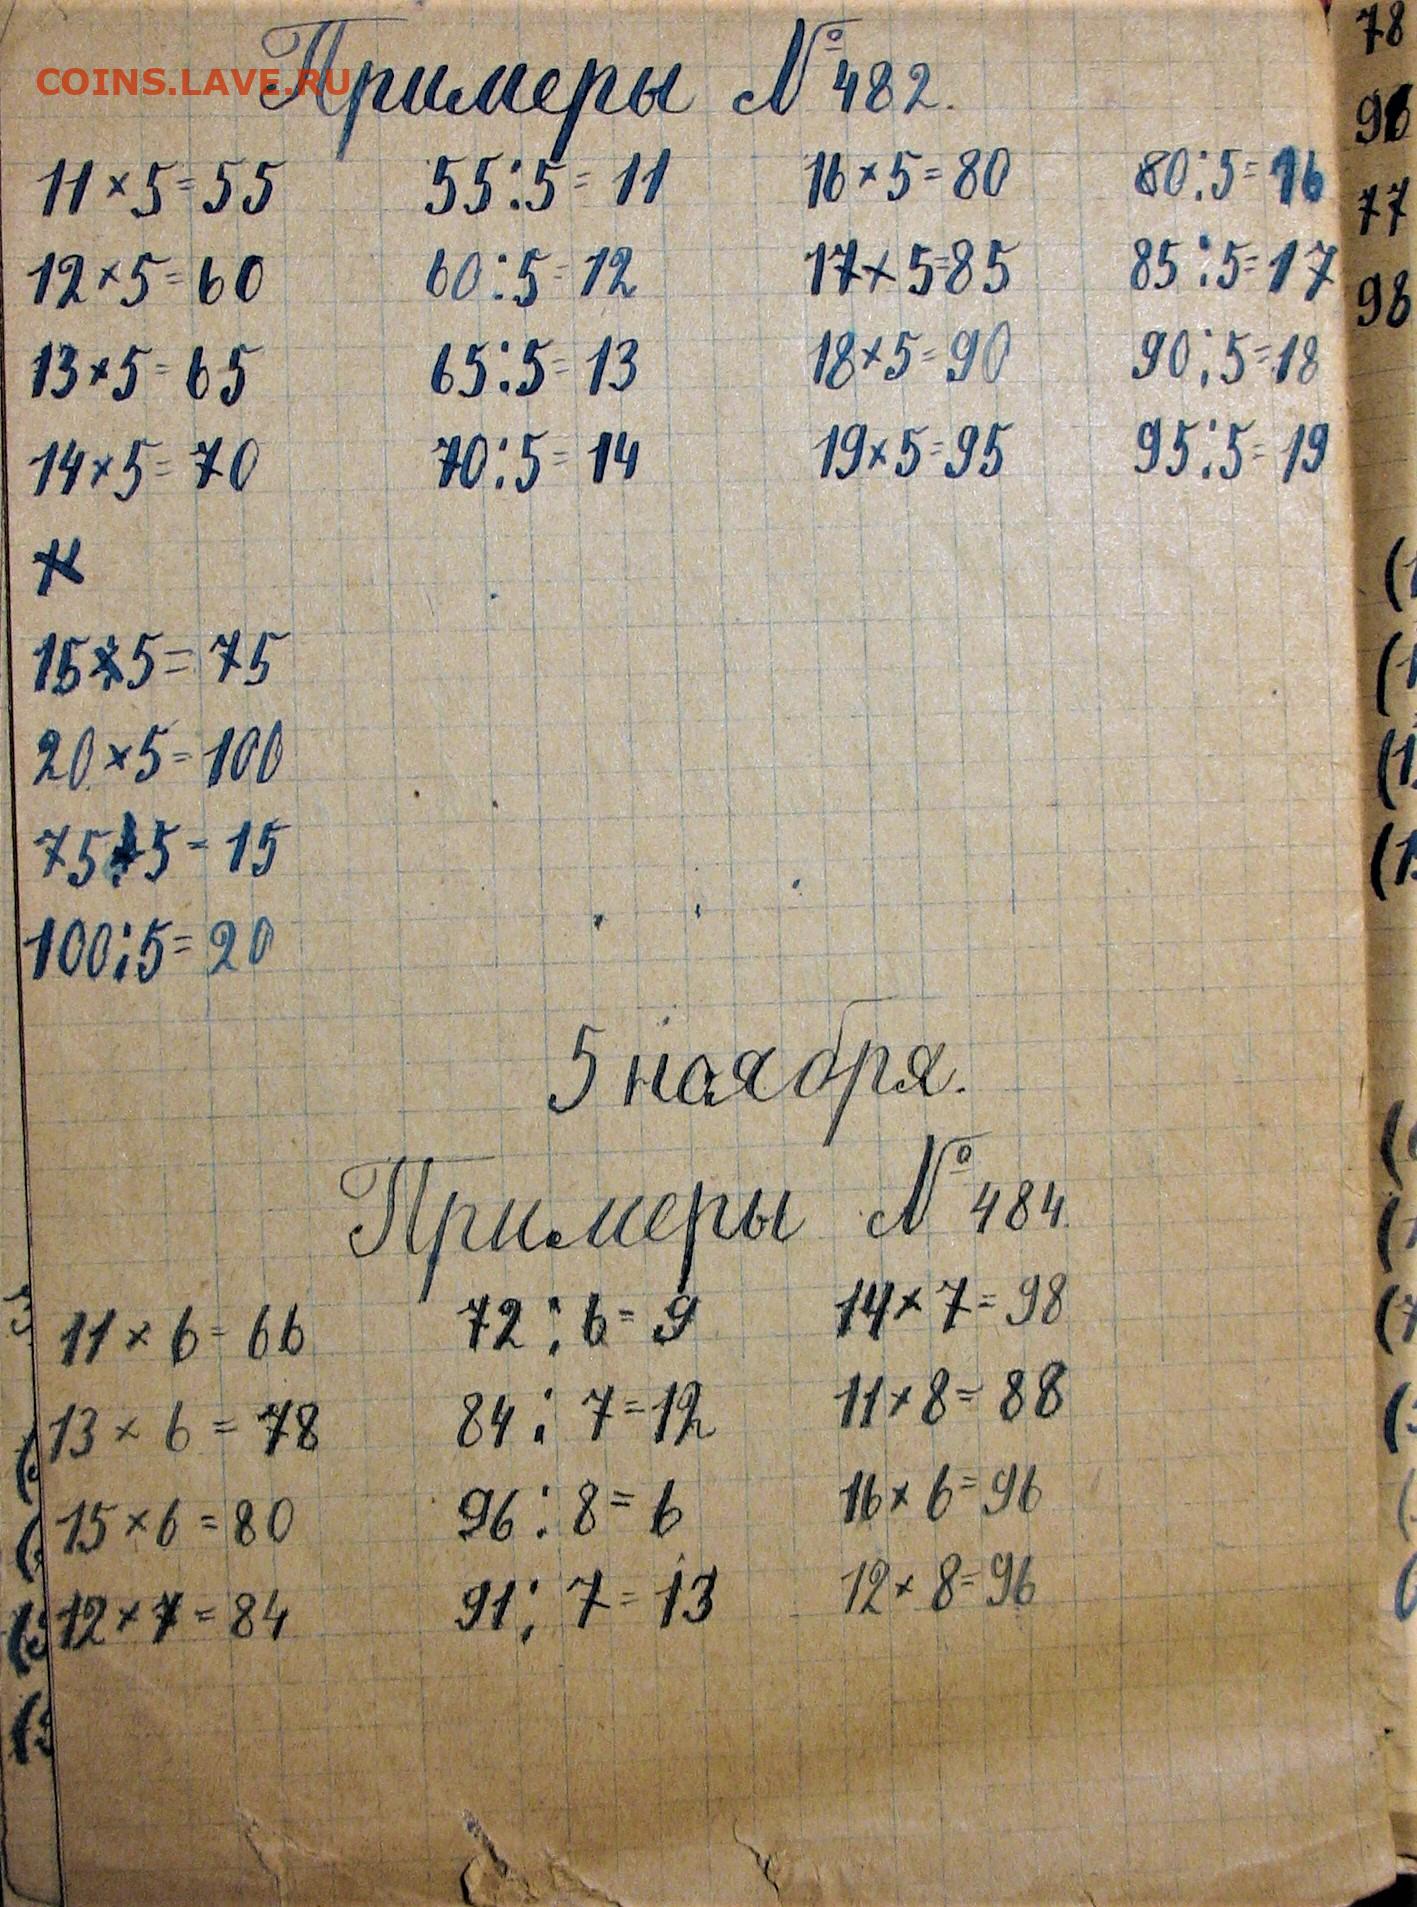 COINS.LAVE.RU
Примеры № 482.
11×5=55 55:5=11 16×5=80 80:5=16
12×5=60 60:5=12 17×5=85 85:5=17
13×5=65 65:5=13 18×5=90 90:5=18
14×5=70 70:5=14 19×5=95 95:5=19
15×5=75
20×5=100
75:5=15
100:5=20
5 ноября.
Примеры № 484.
11×6=66 72:6=9 14×7=98
13×6=78 84:7=12 11×8=88
15×6=80 96:8=6 16×6=96
12×7=84 91:7=13 12×8=96
78
96
77
98